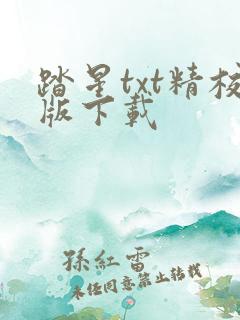 踏星txt精校
版下載
孫紅雷
未经同意禁止转载